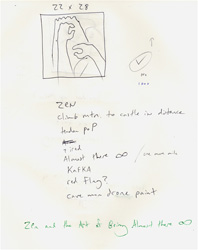 22 x 28
No
ZEN
climb mtn. to castle in distance
tired
Almost there ∞
KAFKA
red flag?
cave man drone paint
Zen and the Art of Being Almost there ∞